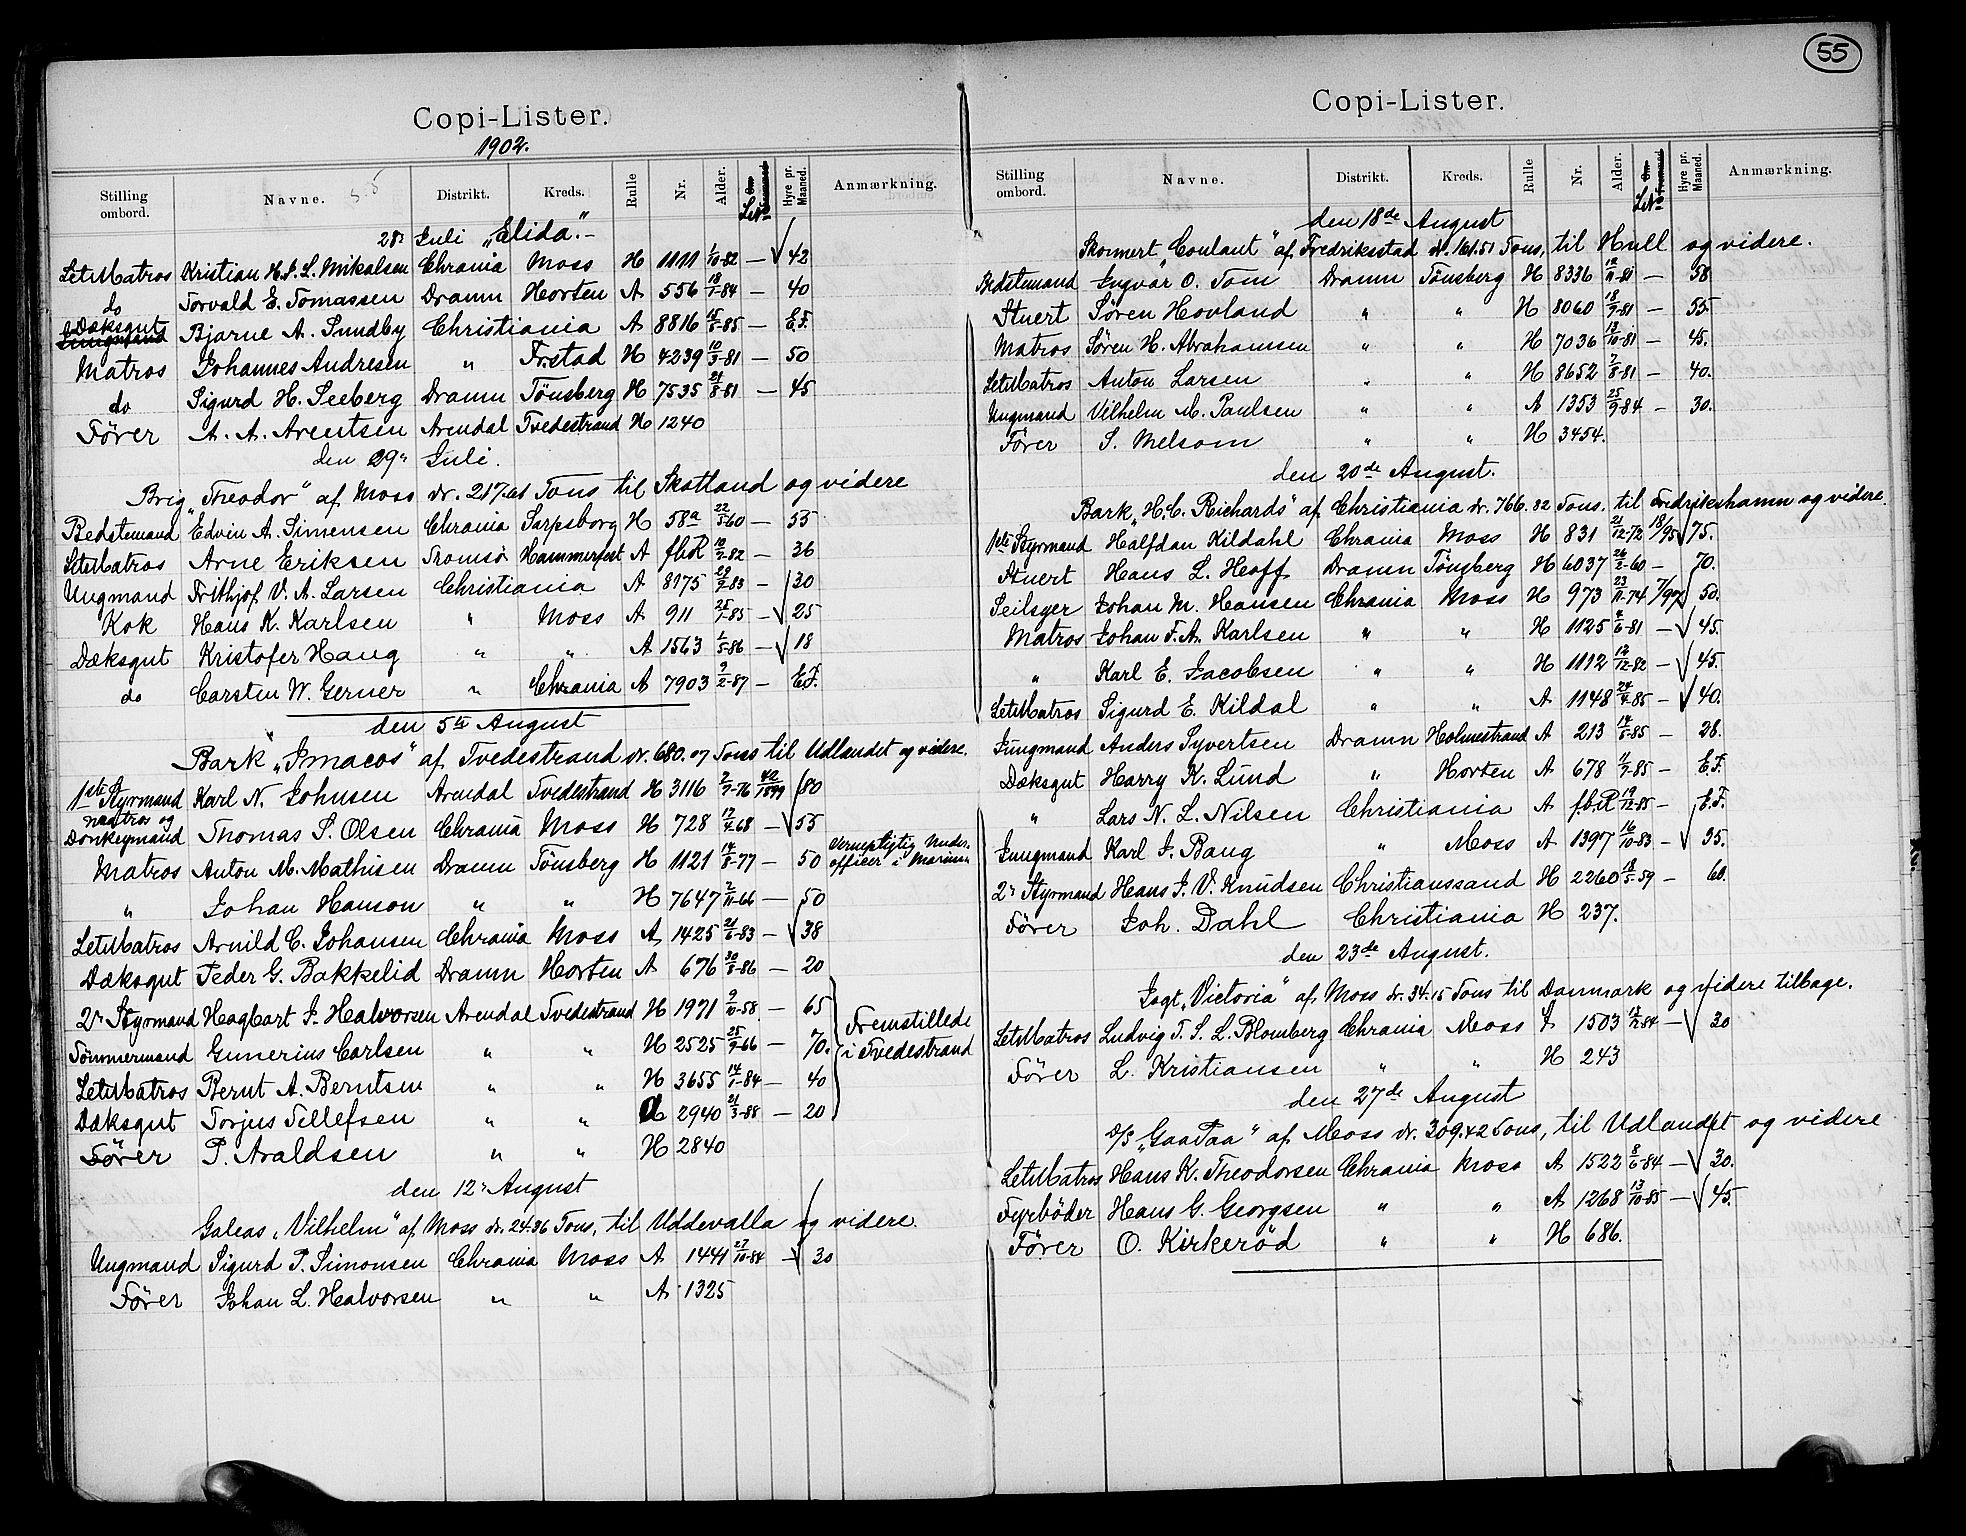 Copi-Lister.
1902.
Stilling ombord. Navne. Distrikt. Kreds. Rulle Nr. Alder. Hyre pr. Maaned. Anmærkning.
28' Juli „Elida".-
LetMatros Kristian H. S. L. Mikalsen Chrania Moss H 1111 1/10-82 — 42
do Torvald E. Tomassen Dramn Horten A 556 18/1-84 — 40
Dæksgut Bjarne A. Sundby Christiania A 8816 15/8-85 — E.F.
Matros Johannes Andresen " Frstad H 4239 10/3-81 — 50
do Sigurd H. Seeberg Dramn Tönsberg H 7535 21/8-81 — 45
Förer A. A. Arentsen Arendal Tvedestrand H 1240
den 29" Juli.
Brig „Theodor" af Moss dr. 217.61 Tons til Skotland og videre
Bedstemand Edvin A. Simensen Chrania Sarpsborg H 58a 22/5-60 — 55
LetMatros Arne Eriksen Tromsö Hammerfest A fbR 10/7-82 — 36
Ungmand Frithjof V. A. Larsen Christiania A 8175 29/9-83 — 30
Kok Hans K. Karlsen " Moss A 911 25/7-85 — 25
Dæksgut Kristofer Haug " " A 1563 1/5-86 — 18
do Carsten W. Gerner " Chrania A 7903 9/2-87 — E.F.
den 5te August
Bark „Imacos" af Tvedestrand dr. 680.07 Tons til Udlandet og videre.
1ste Styrmand Karl N. Johnsen Arendal Tvedestrand H 3116 2/7-76 40/1899 80
Matros og
Donkeymand Thomas S. Olsen Chrania Moss H 728 17/4-68 — 55
Matros Anton M. Mathisen Dramn Tönsberg H 1121 14/8-77 — 50 Vernepligtig Underofficer i Marinen
" Johan Hanson " " H 7647 2/11-66 — 50
LetMatros Arnild C. Johansen Chrania Moss A 1425 21/6-83 — 38
Dæksgut Peder G. Bakkelid Dramn Horten A 676 30/8-86 — 20
2' Styrmand Hagbart J. Halvorsen Arendal Tvedestrand H 1971 9/10-58 — 65 Fremstillede
Tömmermand Gunerius Carlsen " " H 2525 25/9-66 — 70. i Tvedestrand
LetMatros Bernt A. Berntsen " " H 3655 14/1-84 — 40
Dæksgut Torjus Tellefsen " " A 2940 21/3-88 — 20
Förer P. Araldsen " " H 2840
den 12' August
Galeas „Vilhelm" af Moss dr. 24.96 Tons, til Uddevalla og videre.
Ungmand Sigurd P. Simonsen Chrania Moss A 1441 27/10-84 — 30
Förer Johan L. Halvorsen " " A 1325
55
Copi-Lister.
Stilling ombord. Navne. Distrikt. Kreds. Rulle Nr. Alder. Hyre pr. Maaned. Anmærkning.
den 18de August
Skonnert „Coulant" af Fredriksstad dr. 161.51 Tons, til Hull og videre.
Bedstemand Ingvar O. Tom Dramn Tönsberg H 8336 12/11-81 — 58
Stuert Sören Hovland " " H 8060 18/9-81 — 55.
Matros Sören H. Abrahamsen " " H 7036 13/10-81 — 45.
LetMatros Anton Larsen " " H 8652 7/8-81 — 40.
Ungmand Vilhelm M. Paulsen " " A 1353 25/9-84 — 30.
Förer S. Melsom " " H 3454.
den 20de August.
Bark „H. C. Richards" af Christiania dr. 766.82 Tons. til Fredrikshamn og videre.
1ste Styrmand Halfdan Kildahl Chrania Moss H 831 21/12-72 18/95 75.
Stuert Hans L. Hoff Dramn Tönsberg H 6037 26/2-60 — 70.
Seilsyer Johan M. Hansen Chrania Moss H 973 23/11-74 7/97 50.
Matros Johan F. A. Karlsen " " H 1125 4/6-81 — 45.
" Karl E. Jacobsen " " H 1112 12/12-82 — 45.
LetMatros Sigurd E. Kildal " " A 1148 24/4-85 — 40.
Jungmand Anders Syvertsen Dramn Holmestrand A 213 14/5-85 — 28.
Dæksgut Harry K. Lund " Horten A 678 1/7-85 — E.F.
" Lars N. L. Nilsen Christiania A f.b.R 19/12-85 — E.F.
Jungmand Karl J. Bang " Moss A 1397 16/10-83 — 35.
2' Styrmand Hans J. V. Knudsen Christianssand H 2260 18/5-59 — 60.
Förer Joh. Dahl Christiania H 237.
den 23de August.
Jagt „Victoria" af Moss dr. 34.15 Tons til Danmark og videre tilbage.
LetMatros Ludvig T. S. L. Blomberg Chrania Moss A 1503 17/2-84 — 30
Förer L. Kristiansen " " H 243
den 27de August
D/S „GaaPaa" af Moss dr. 309.42 Tons, til Udlandet og videre
LetMatros Hans K. Theodorsen Chrania Moss A 1522 8/6-84 — 30.
Fyrböder Hans G. Georgsen " " A 1268 13/10-85 — 45.
Förer O. Kirkeröd " " H 686.